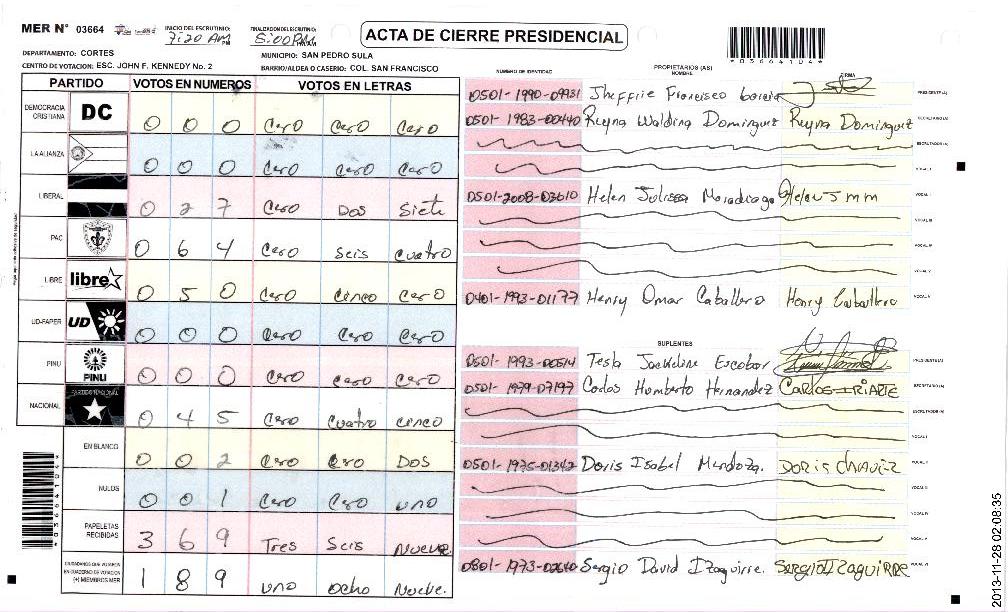 MER N° 03664
INICIO DEL ESCRUTINIO: 7:20 AM
FINALIZACION DEL ESCRUTINIO: 5:00 PM
ACTA DE CIERRE PRESIDENCIAL
*03664104*
DEPARTAMENTO: CORTES
MUNICIPIO: SAN PEDRO SULA
CENTRO DE VOTACION: ESC. JOHN F. KENNEDY No. 2
BARRIO/ALDEA O CASERIO: COL. SAN FRANCISCO
PARTIDO VOTOS EN NUMEROS VOTOS EN LETRAS
DEMOCRACIA CRISTIANA DC 0 0 0 Cero Cero Cero
LA ALIANZA 0 0 0 Cero Cero Cero
LIBERAL 0 2 7 Cero Dos Siete
PAC 0 6 4 Cero Seis Cuatro
LIBRE libre 0 5 0 Cero Cinco Cero
UD-FAPER UD 0 0 0 Cero Cero Cero
PINU PINU 0 0 0 Cero Cero Cero
NACIONAL PARTIDO NACIONAL 0 4 5 Cero Cuatro Cinco
EN BLANCO 0 0 2 Cero Cero Dos
NULOS 0 0 1 Cero Cero Uno
PAPELETAS RECIBIDAS 3 6 9 Tres Seis Nueve
CIUDADANOS QUE VOTARON EN CUADERNO DE VOTACION (+) MIEMBROS MER 1 8 9 Uno Ocho Nueve.
*03664104*
NUMERO DE IDENTIDAD PROPIETARIOS (AS) NOMBRE FIRMA
0501-1990-09931 Francisco Garcia PRESIDENTE(A)
0501-1983-00440 Reyna Waldina Dominguez Reyna Dominguez SECRETARIO(A)
ESCRUTADOR (A)
VOCAL I
0501-2008-03610 Helen Julissa VOCAL II
VOCAL III
VOCAL IV
VOCAL V
0401-1993-01177 Henry Omar Caballero Henry Caballero
SUPLENTES
0501-1993-00514 Tesla Jackeline Escobar PRESIDENTE(A)
0501-1979-07197 Carlos Humberto Hernandez CARLOS IRIARTE SECRETARIO(A)
ESCRUTADOR (A)
VOCAL I
0501-1975-01342 Doris Isabel Mendoza. DORIS CHAVEZ VOCAL II
VOCAL III
VOCAL IV
VOCAL V
Sergio David Izaguirre. SERGIO IZAGUIRRE VOCAL VI
2013-11-28 02:08:35